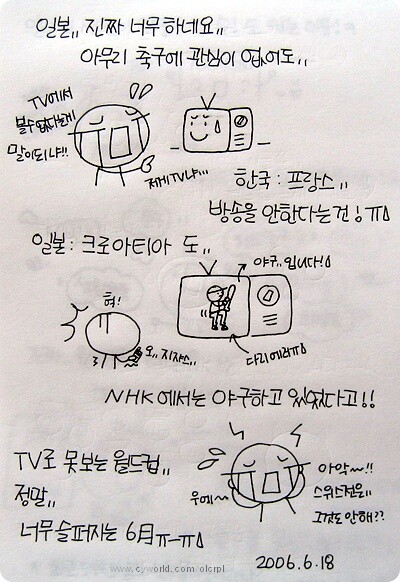 일본,, 진짜 너무하네요,,
아무리 축구에 관심이 없어도,,
TV에서
볼수없다는게
말이되냐!!
제게TV냐...
한국 : 프랑스,,
방송을 안한다는건! ㅠㅠ
일본 : 크로아티아 도,,
야구..입니다!
헉!
오..지쟈스..
다리에러ㅠ
NHK에서는 야구하고 있었다고!!
TV로 못보는 월드컵,,
정말,,
너무 슬퍼지는 6月 ㅠ-ㅠ
아악~!!
스위스전은,,
그것도안해??
우에~
2006.6.18
www.cyworld.com/olcrpl